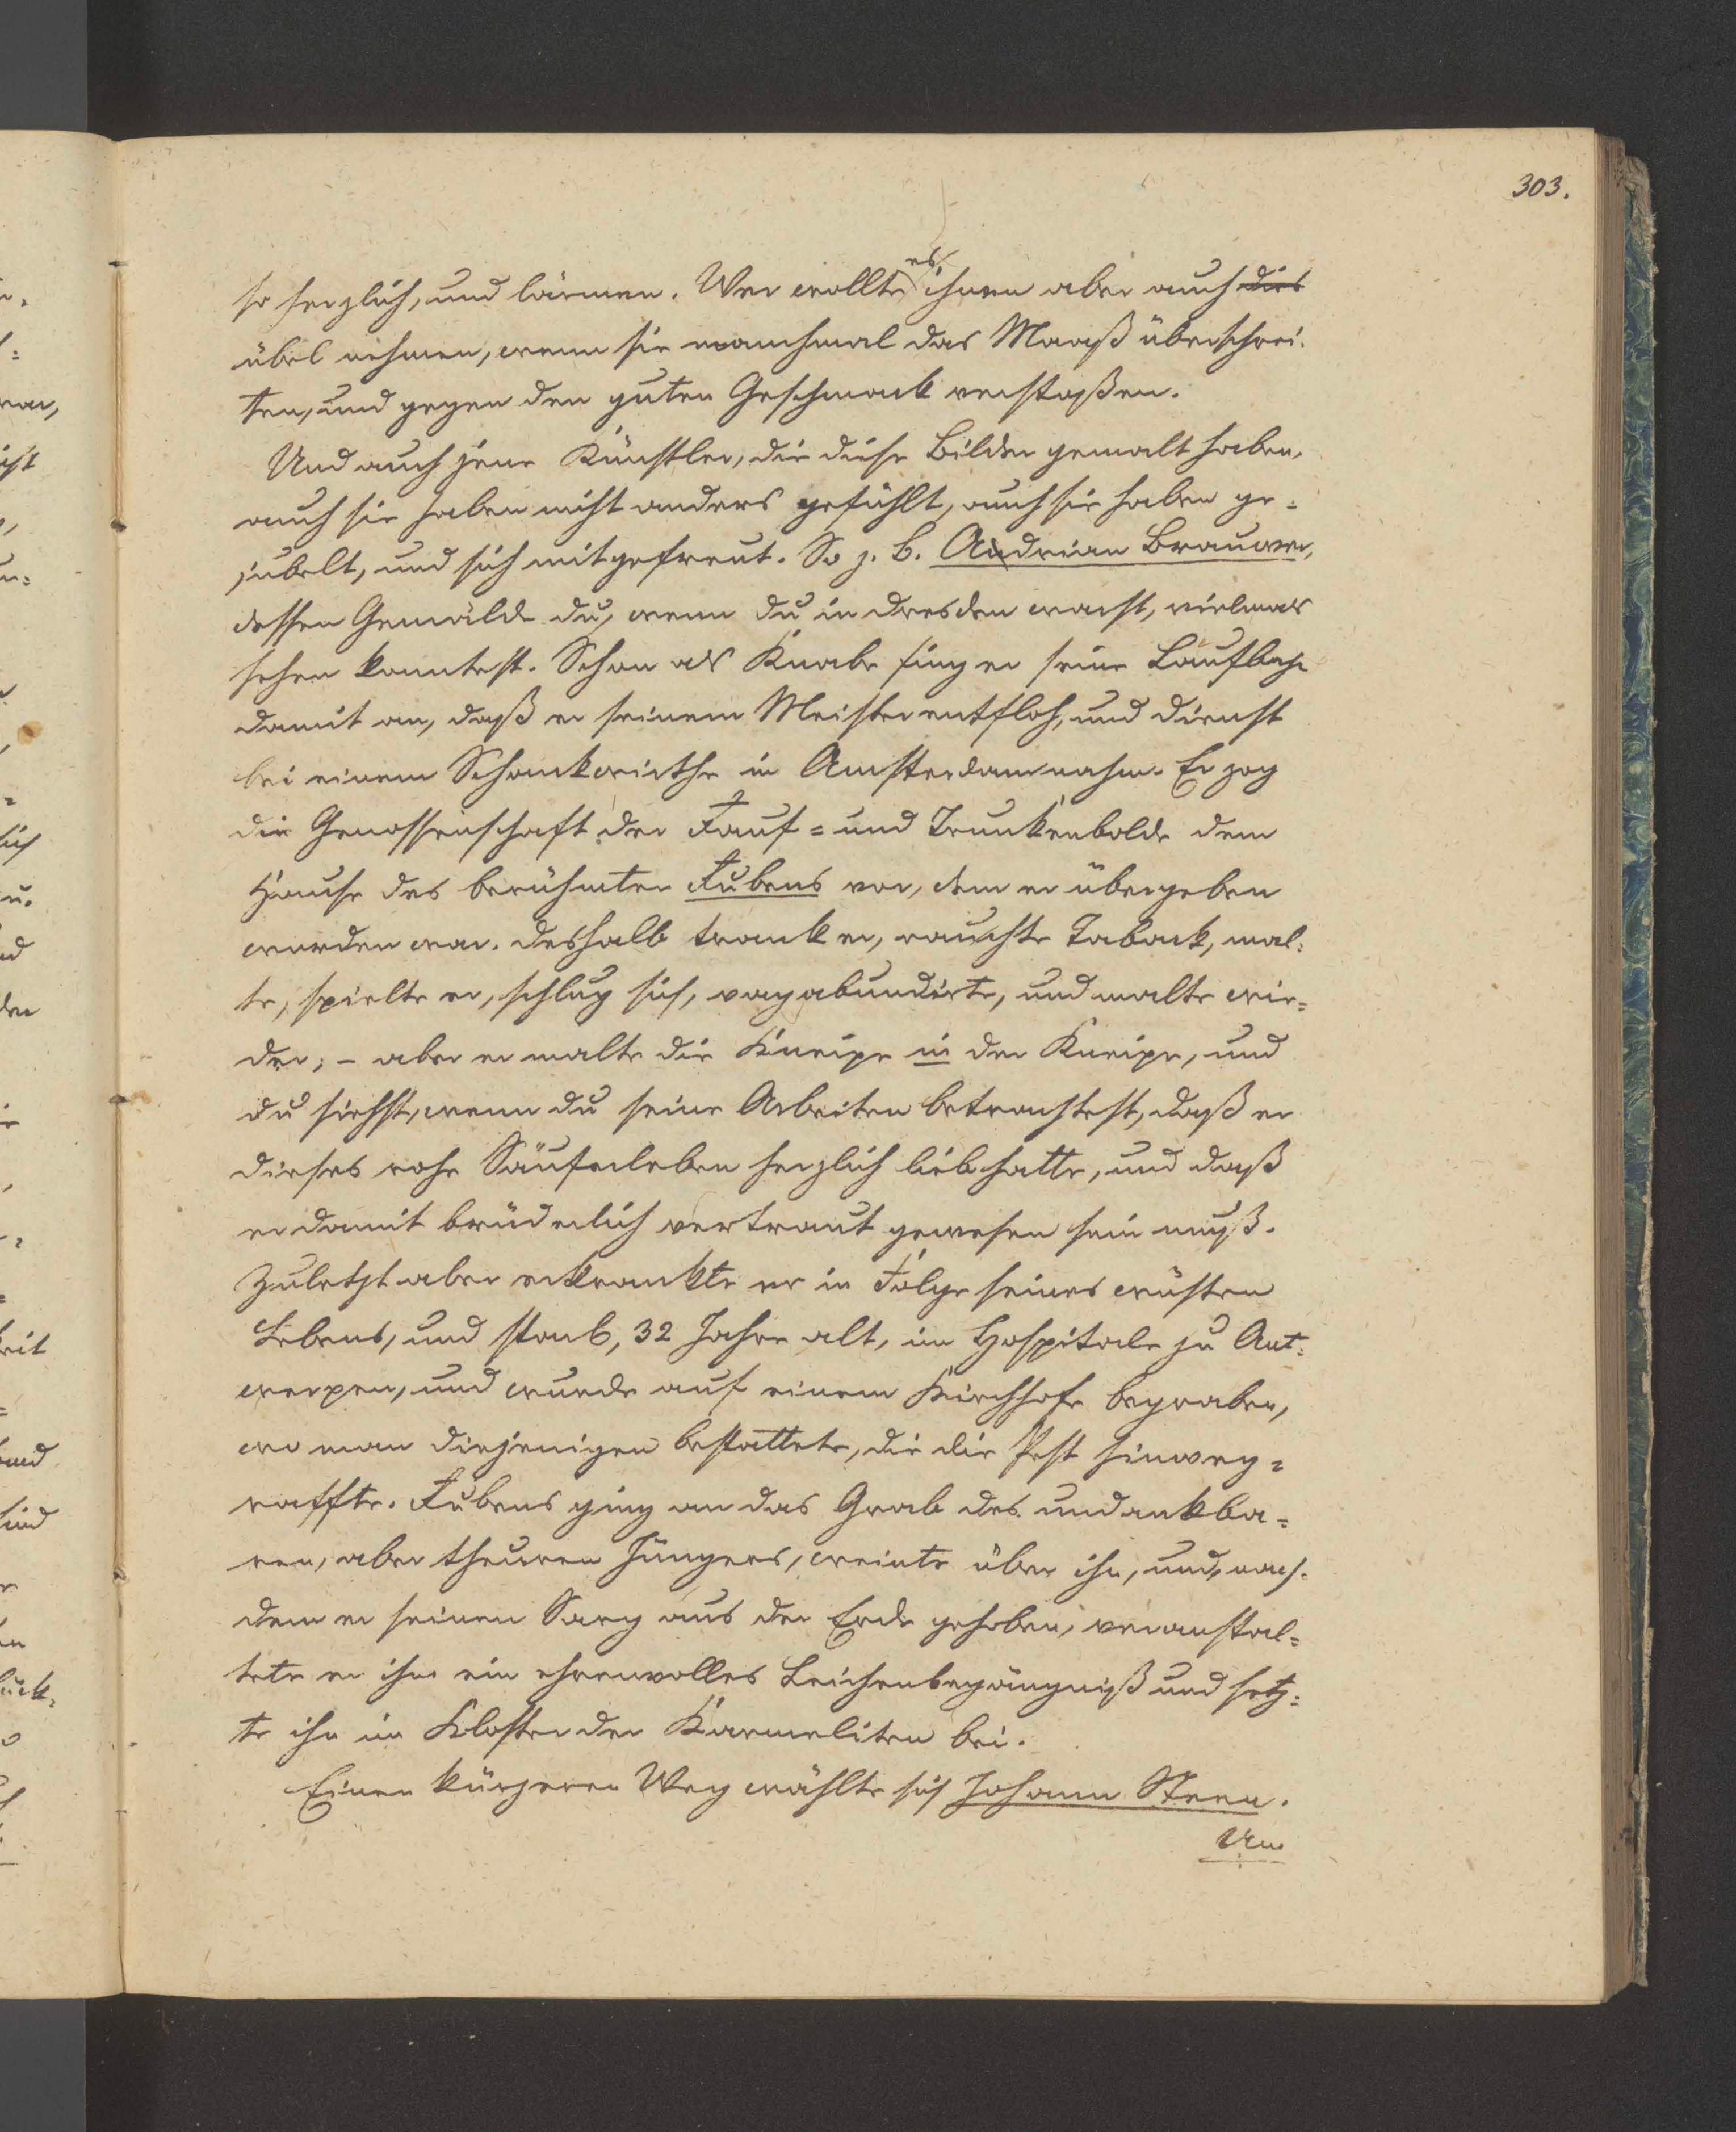 303.
so herzlich, und lärmen. Wer wollte es ihnen aber auch dies
übel nehmen, wenn sie manchmal das Maaß überschrei-
ten, und gegen den guten Geschmack verstoßen.
Und auch jene Künstler, die diese Bilder gemalt haben,
auch sie haben nicht anders gefühlt, auch sie haben ge-
jubelt, und sich mitgefreut. So z. B. Adrian Brauwer,
dessen Gemälde du, wenn du in Dresden warst, vielmals
sehen konntest. Schon als Knabe fing er seine Laufbahn
damit an, daß er seinem Meister entfloh, und Dienst
bei einem Schenkwirthe in Amsterdam nahm. Er zog
die Genossenschaft der Rauf= und Trunkenbolde dem
Hause des berühmten Rubens vor, dem er übergeben
worden war. Deshalb trank er, rauchte Taback, mal-
te, spielte er, schlug sich, vagabundirte, und malte wie=
der; – aber er malte die Kneipe in der Kneipe, und
du siehst, wenn du seine Arbeiten betrachtest, daß er
dieses rohe Säuferleben herzlich lieb hatte, und daß
er damit brüderlich vertraut gewesen sein muß.
Zuletzt aber erkrankte er in Folge seines wüsten
Lebens, und starb, 32 Jahre alt, im Hospitale zu Ant-
werpen, und wurde auf einem Kirchhofe begraben,
wo man diejenigen bestattete, die die Pest hinweg=
raffte. Rubens ging an das Grab des undankba=
ren, aber theuren Jüngers, weinte über ihn, und, nach-
dem er seinen Sarg aus der Erde gehoben, veranstal=
tete er ihm ein ehrenvolles Leichenbegängniß und setz=
te ihn im Kloster der Karmeliten bei.
Einen kürzeren Weg wählte sich Johann Steen.
Um